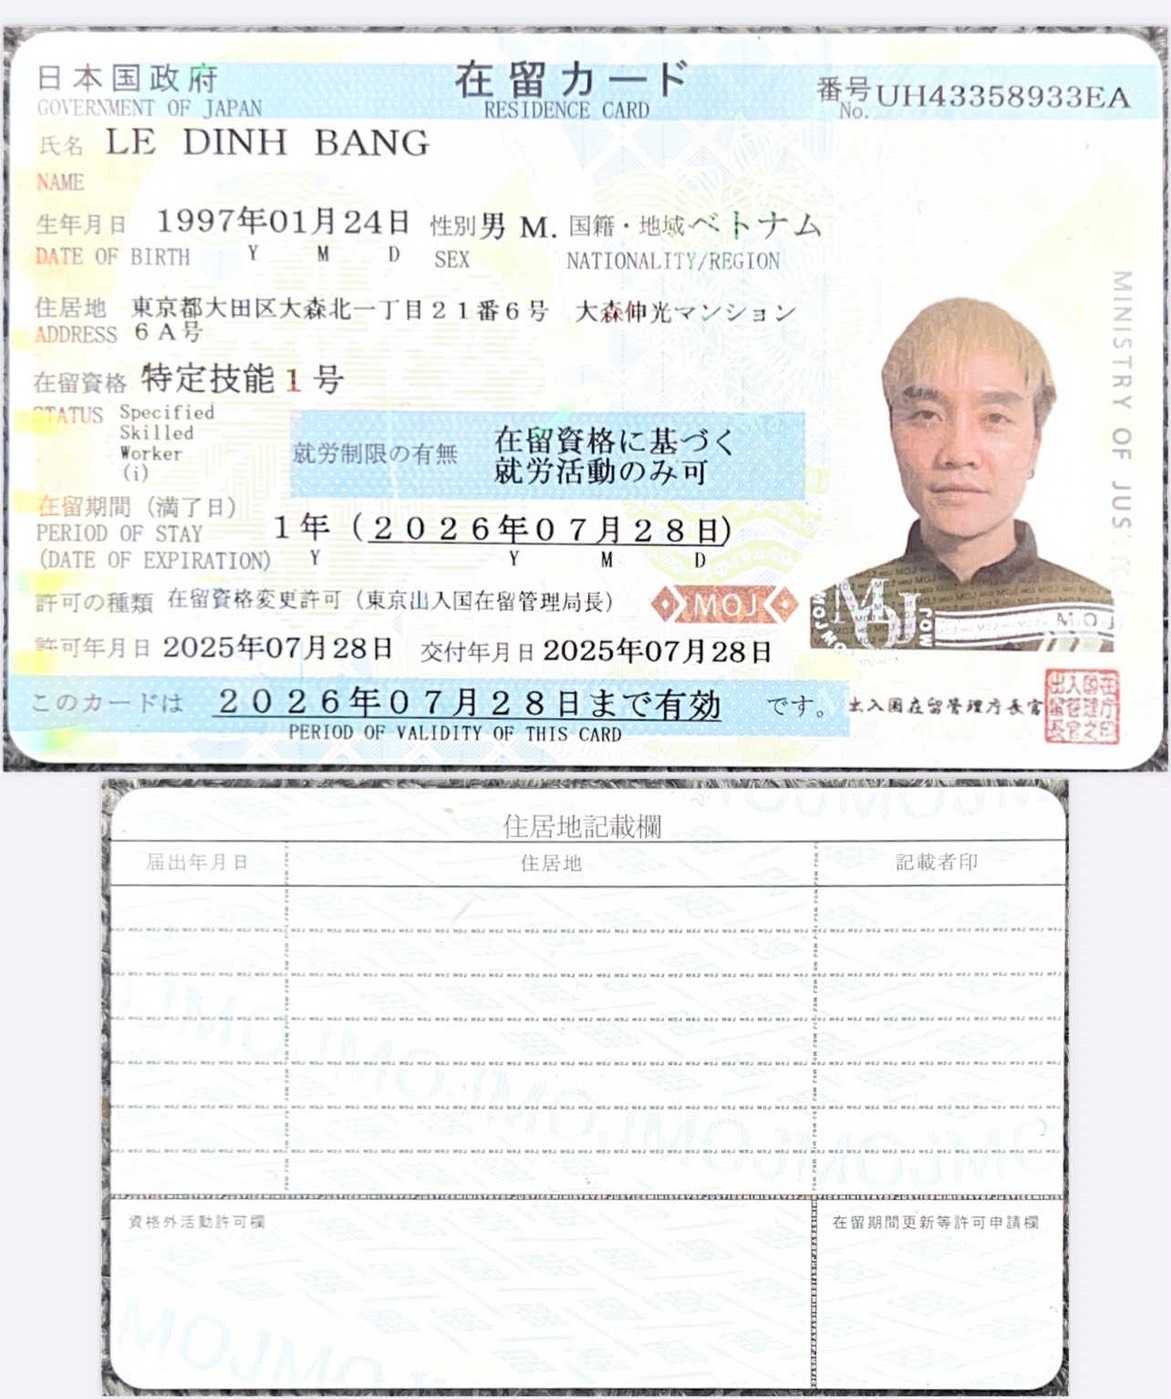 日本国政府
GOVERNMENT OF JAPAN
在留カード
RESIDENCE CARD
番号 UH43358933EA
No.
氏名 LE DINH BANG
NAME
生年月日 1997年01月24日 性別 男 M. 国籍・地域 ベトナム
DATE OF BIRTH Y M D SEX NATIONALITY/REGION
住居地 東京都大田区大森北一丁目21番6号 大森伸光マンション
ADDRESS 6A号
在留資格 特定技能1号
STATUS Specified
Skilled
Worker
(i)
就労制限の有無 在留資格に基づく
就労活動のみ可
在留期間(満了日)
PERIOD OF STAY
(DATE OF EXPIRATION)
1年(2026年07月28日)
Y Y M D
許可の種類 在留資格変更許可(東京出入国在留管理局長)
MOJ
許可年月日 2025年07月28日 交付年月日 2025年07月28日
このカードは 2026年07月28日まで有効 です。
PERIOD OF VALIDITY OF THIS CARD
出入国在留管理庁長官
MINISTRY OF JUS
MOJ
住居地記載欄
届出年月日 住居地 記載者印
資格外活動許可欄
在留期間更新等許可申請欄